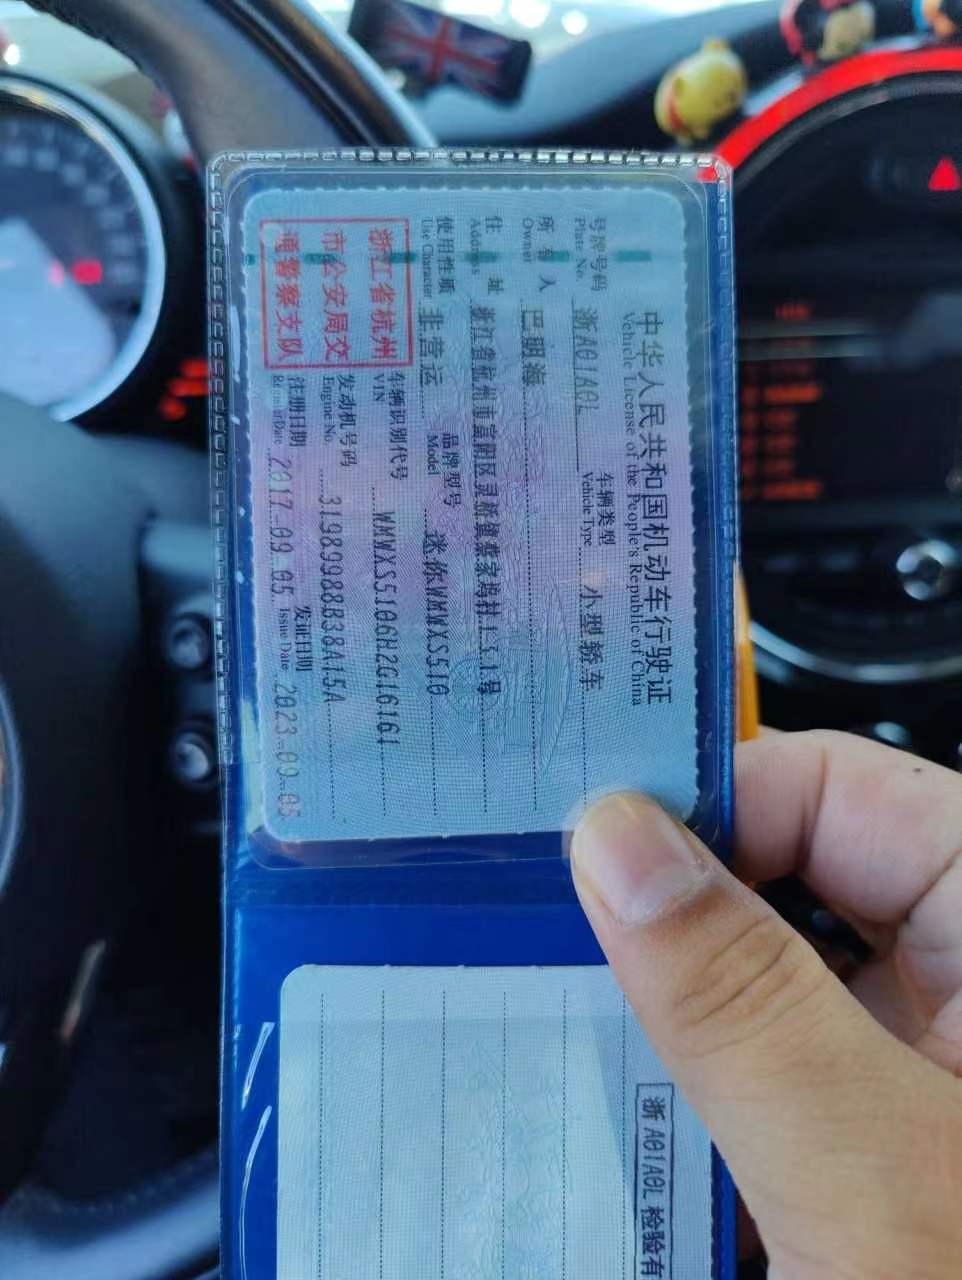 中华人民共和国机动车行驶证
Vehicle License of the People's Republic of China
号牌号码
Plate No.
浙A01A0L
车辆类型
Vehicle Type
小型轿车
所有人
Owner
巴明海
住址
Address
使用性质
Use Character
非营运
品牌型号
Model
迷你WMWXS510
浙江省杭州
市公安局交
通警察支队
车辆识别代号
VIN
WMWXS5106H2G16161
发动机号码
Engine No.
3198998
注册日期
Register Date
2017-09-05
发证日期
Issue Date
2023-09-05
浙A01A0L 检验有